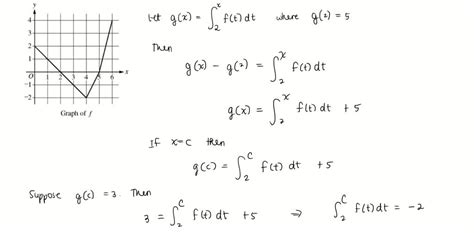 4
3
2
1
O
1 2 3 4 5 6 x
−1
−2
Graph of f
let g(x) = ∫₂ˣ f(t) dt where g(2) = 5
Then
g(x) − g(2) = ∫₂ˣ f(t) dt
g(x) = ∫₂ˣ f(t) dt + 5
If x=c then
g(c) = ∫₂ᶜ f(t) dt + 5
Suppose g(c) = 3. Then
3 = ∫₂ᶜ f(t) dt + 5 ⇒ ∫₂ᶜ f(t) dt = −2